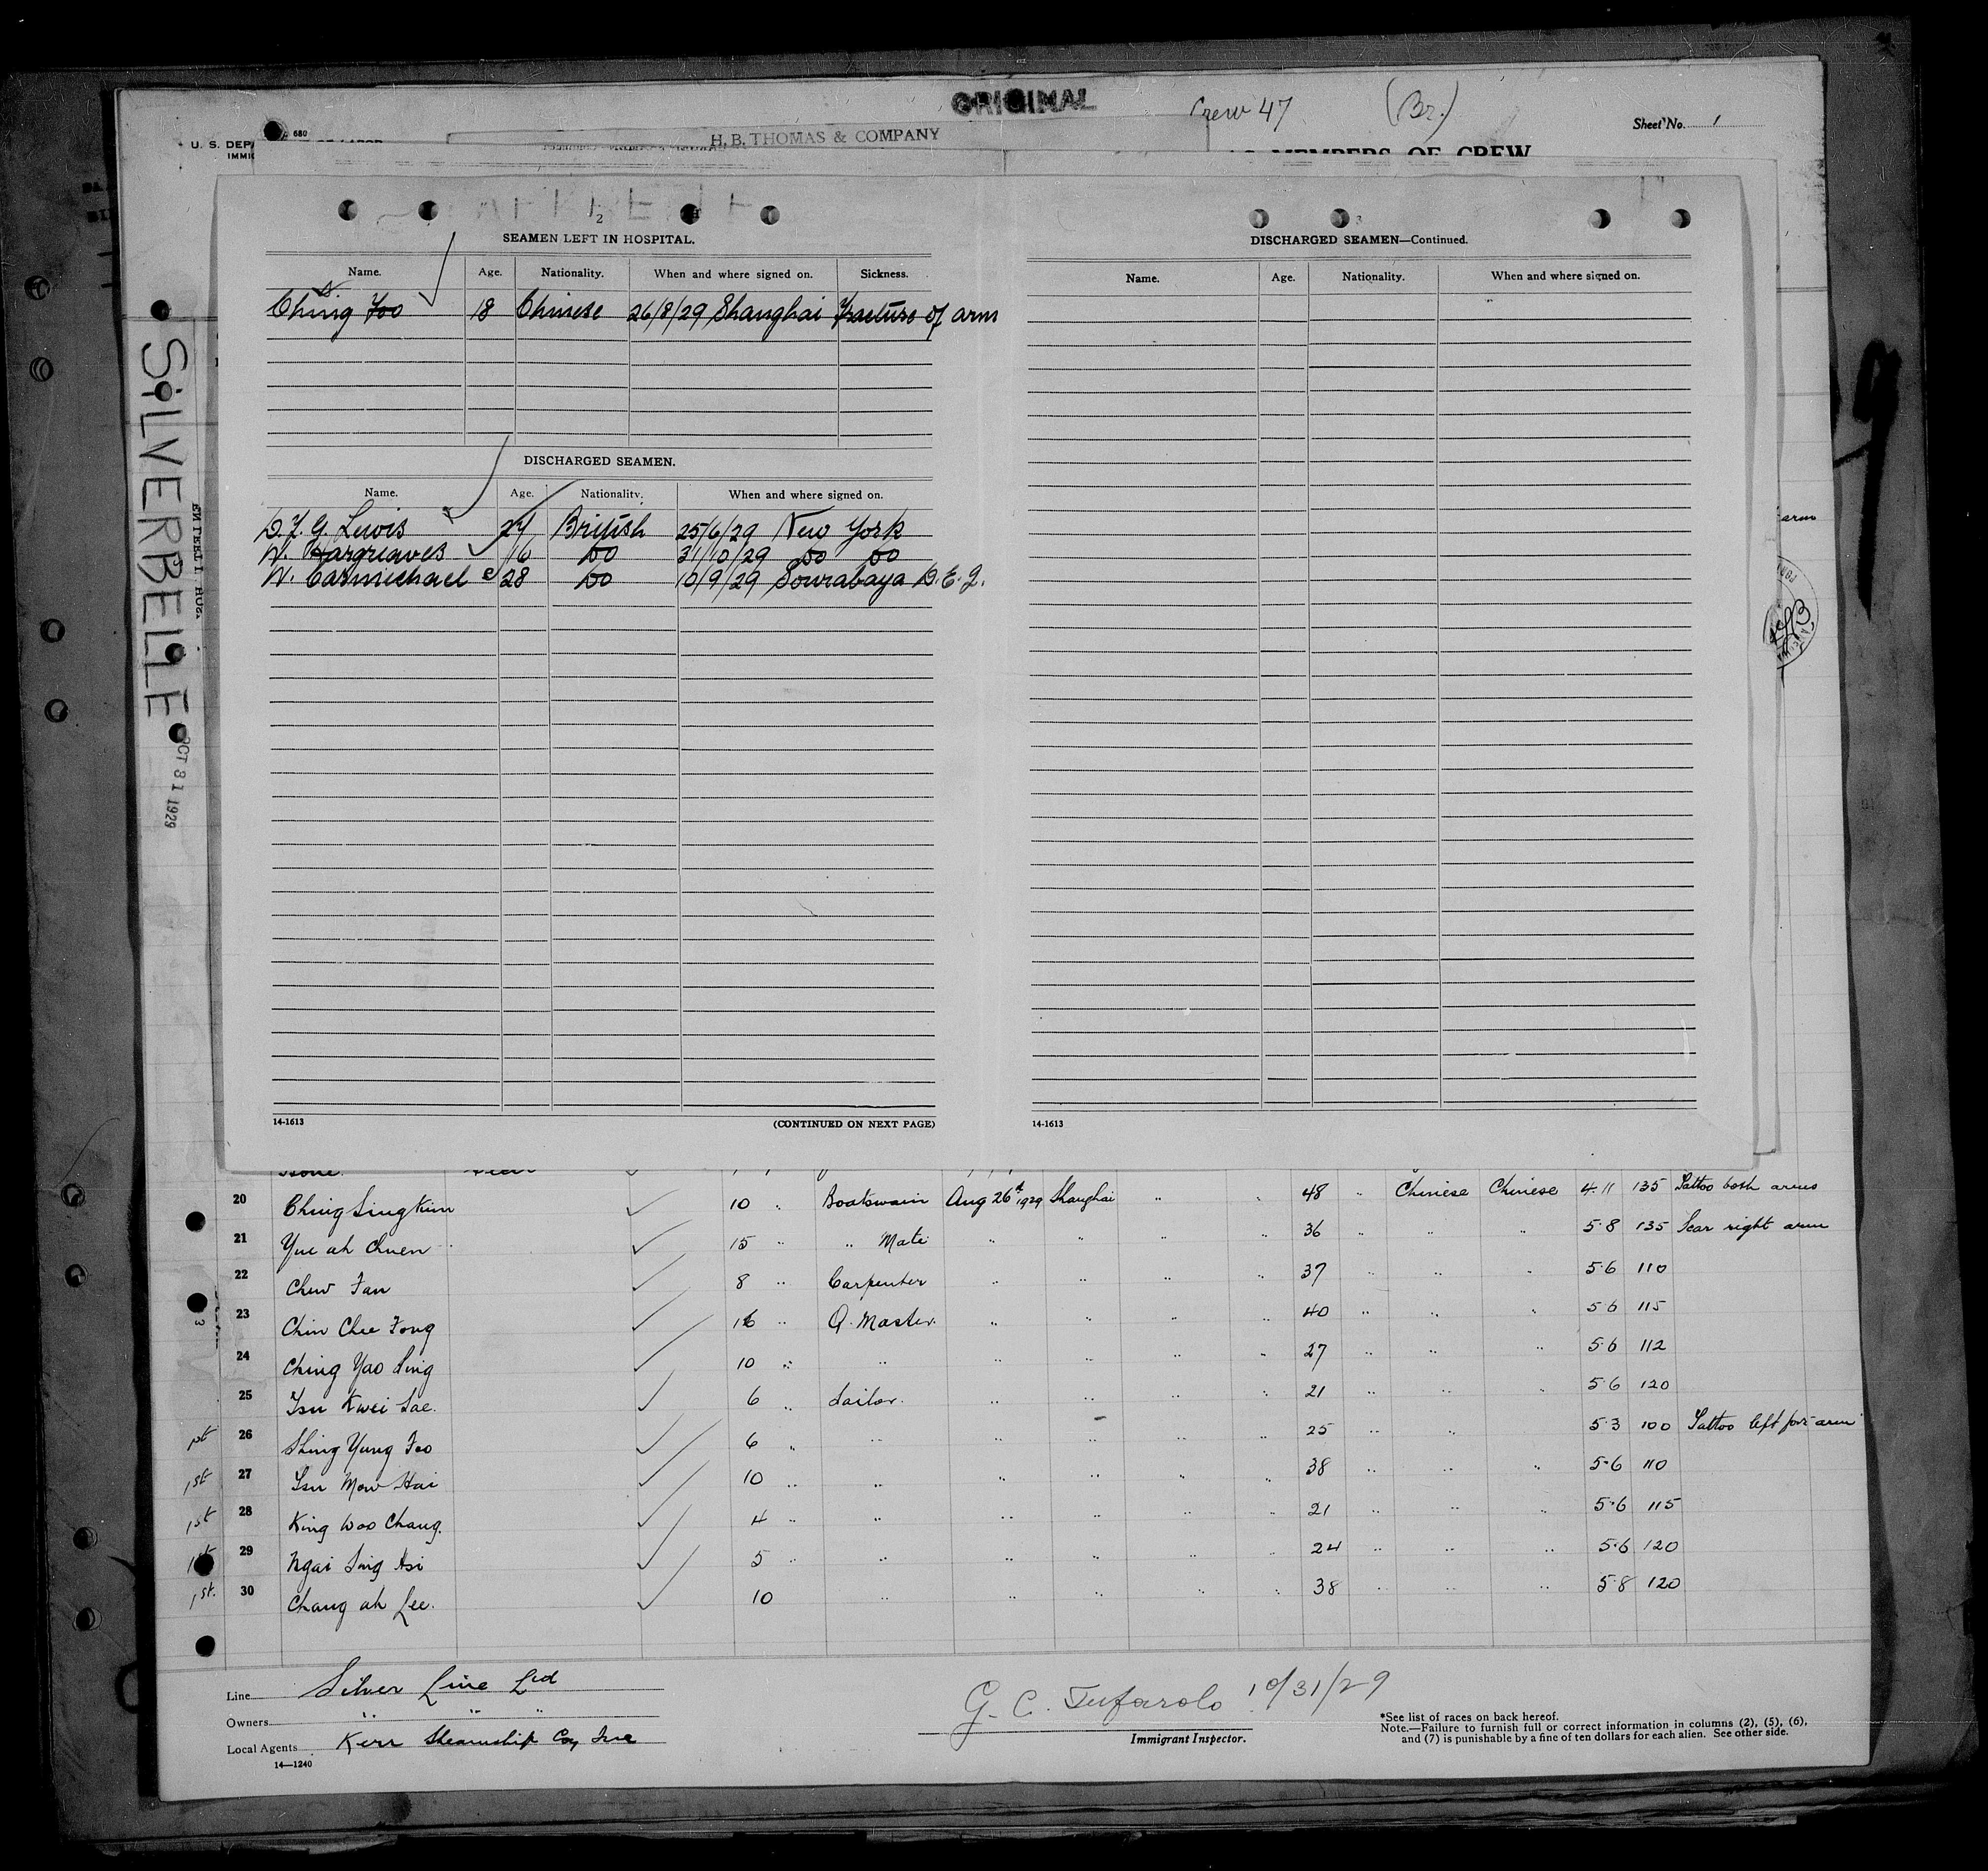 ORIGINAL
Crew 47 (Br.)
Sheet No. 1
680
U. S. DEPA
IMMIG
H. B. THOMAS & COMPANY
MEMBERS OF CREW
SILVERBELLE
OCT 31 1929
2
SEAMEN LEFT IN HOSPITAL.
Name. Age. Nationality. When and where signed on. Sickness.
Ching Foo 18 Chinese 26/8/29 Shanghai Fracture of arm
DISCHARGED SEAMEN.
Name. Age. Nationality. When and where signed on.
D. F. G. Lewis 27 British 25/6/29 New York
W. Hargreaves 16 Do 31/10/29 Do Do
W. Carmichael 28 Do 10/9/29 Sourabaya D. E. I.
14-1613 (CONTINUED ON NEXT PAGE)
3
DISCHARGED SEAMEN—Continued.
Name. Age. Nationality. When and where signed on.
14-1613
arm
20 Ching Sing Kim 10 " Boatswain Aug 26th 1929 Shanghai " " 48 " Chinese Chinese 4.11 135 Tattoo both arms
21 Yue ah Chuen 15 " " Mate " " " " 36 " " " 5.8 135 Scar right arm
22 Chew Fan 8 " Carpenter " " " " 37 " " " 5.6 110
23 Chin Chee Fong 16 " Q. Master. " " " " 40 " " " 5.6 115
24 Ching Yao Sing 10 " " " " " " 27 " " " 5.6 112
25 Tsu Kwei Sae. 6 " Sailor. " " " " 21 " " " 5.6 120
1st 26 Shing Yung Foo 6 " " " " " " 25 " " 5.3 100 Tattoo left fore-arm
1st 27 Tsu Mow Hai 10 " " " " " " 38 " " " 5.6 110
1st 28 King Woo Chang. 4 " " " " " " 21 " " " 5.6 115
1st 29 Ngai Sing Hsi 5 " " " " " " 24 " " " 5.6 120
1st. 30 Chang ah Lee. 10 " " " " " 38 " " " 5.8 120
Line Silver Line Ltd
Owners " " "
Local Agents Kerr Steamship Coy Inc
14—1240
G. C. Tufarolo 10/31/29
Immigrant Inspector.
*See list of races on back hereof.
Note.—Failure to furnish full or correct information in columns (2), (5), (6),
and (7) is punishable by a fine of ten dollars for each alien. See other side.